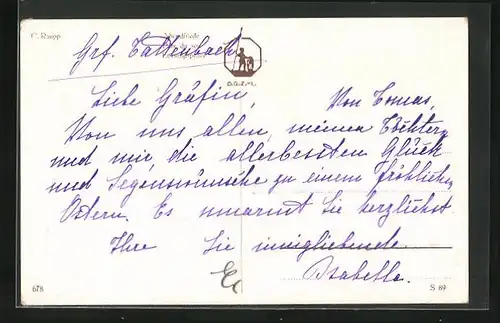 C. Raupp
Grf. Tattenbach
Liebe Gräfin, Von Tomas,
Von uns allen, meinen Töchtern
und mir, die allerbessten Glück
und Segenswünsche zu einem fröhlichen
Ostern. Es umarmt Sie herzlichst
Ihre Sie innigliebende
Isabella.
678 S 69